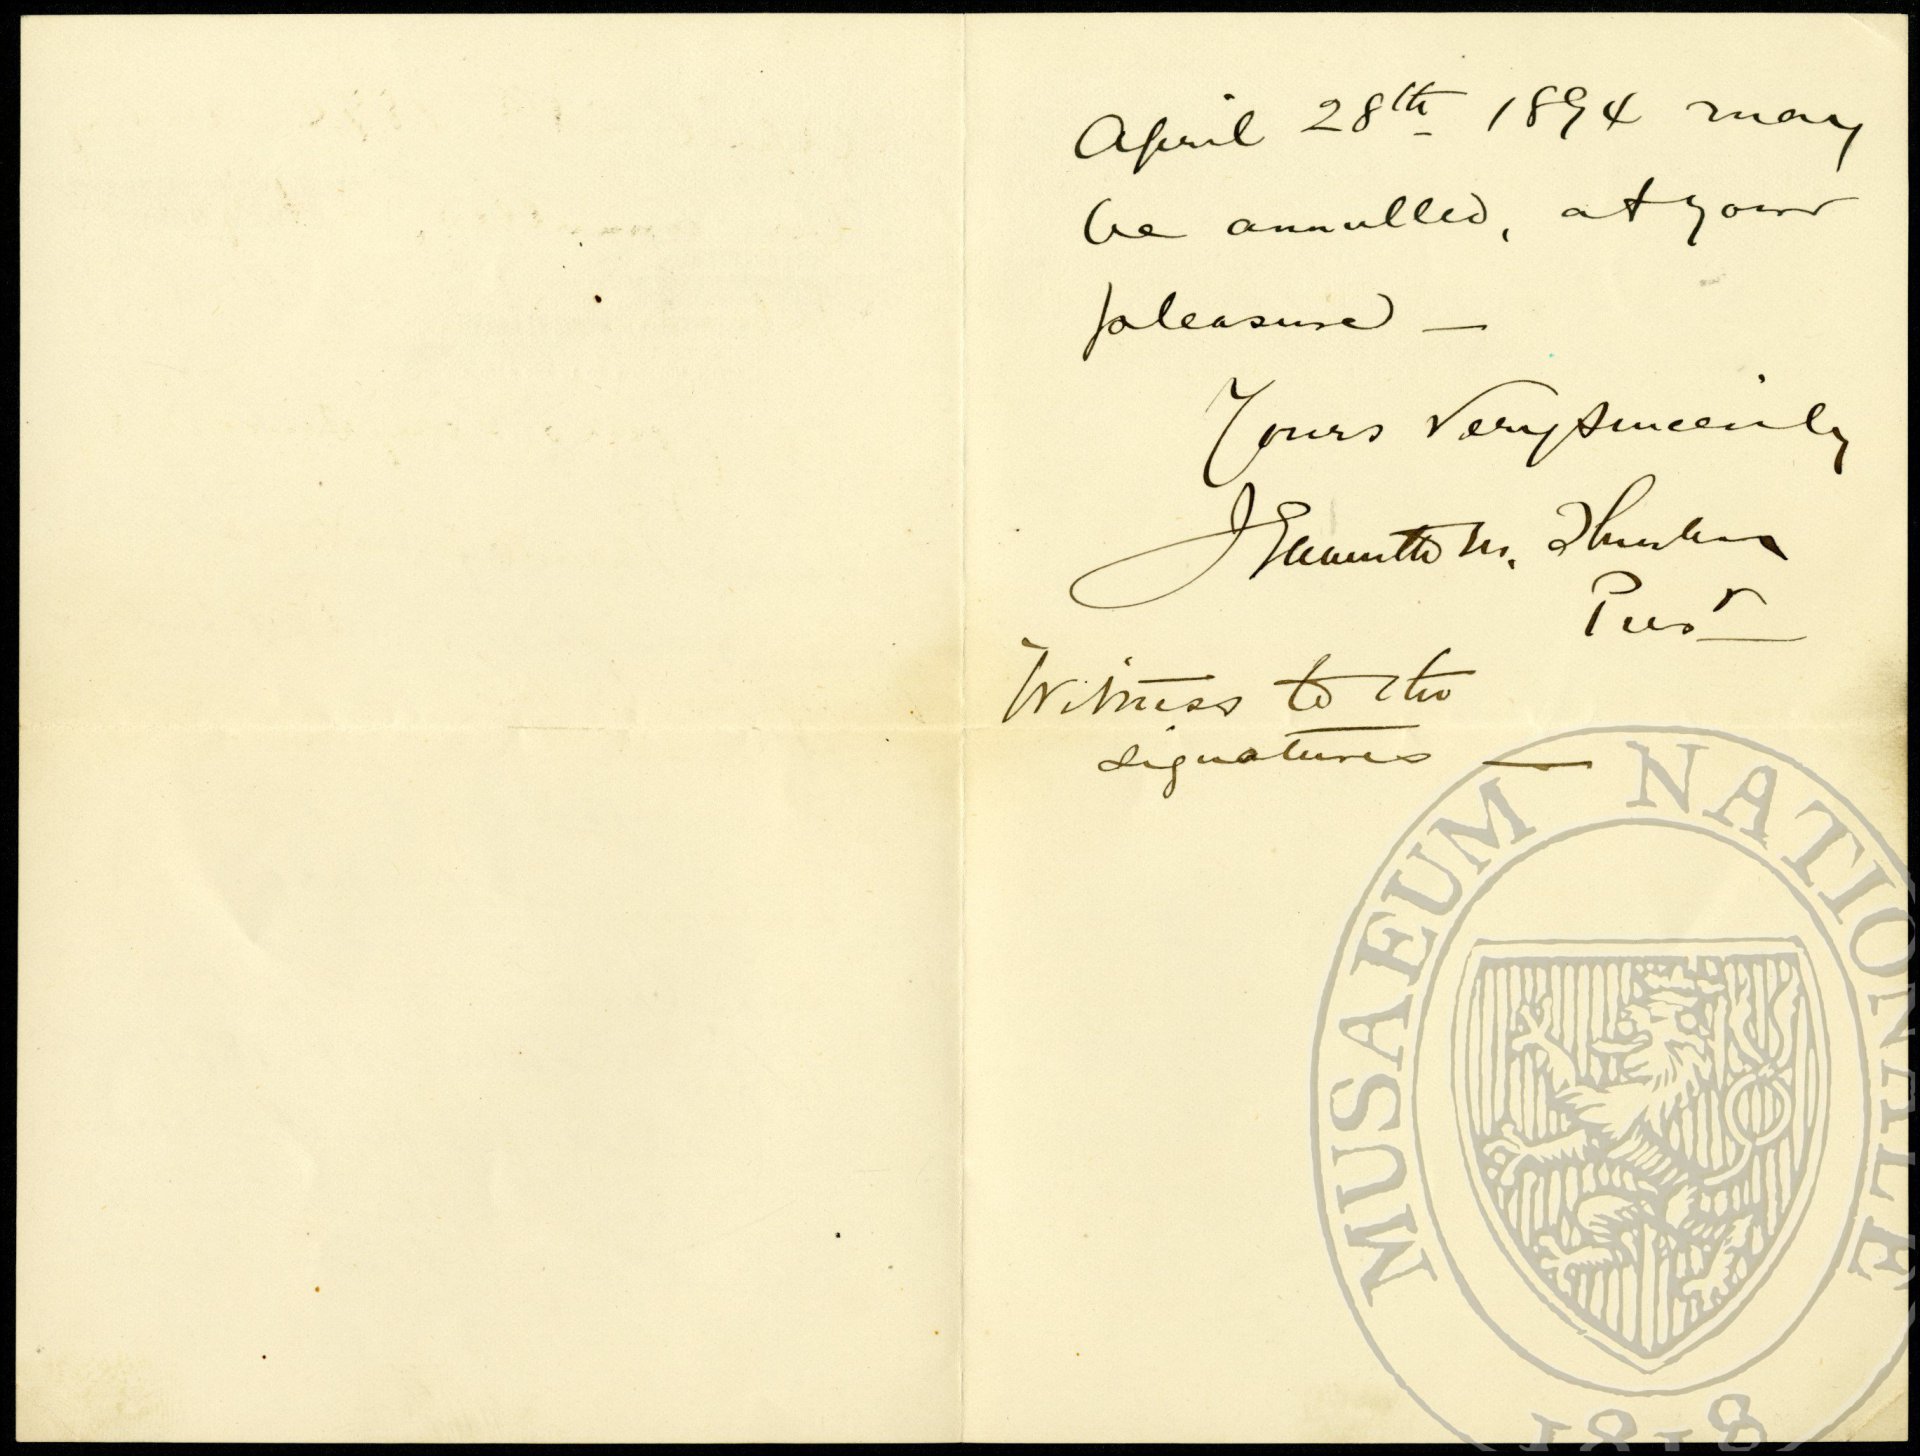 April 28th 1894 may
be annulled, at your
pleasure —
Yours Very sincerely
Jeannette M. Thurber
Prest
Witness to the
signatures —
MUSAEUM NATIONALE
1818